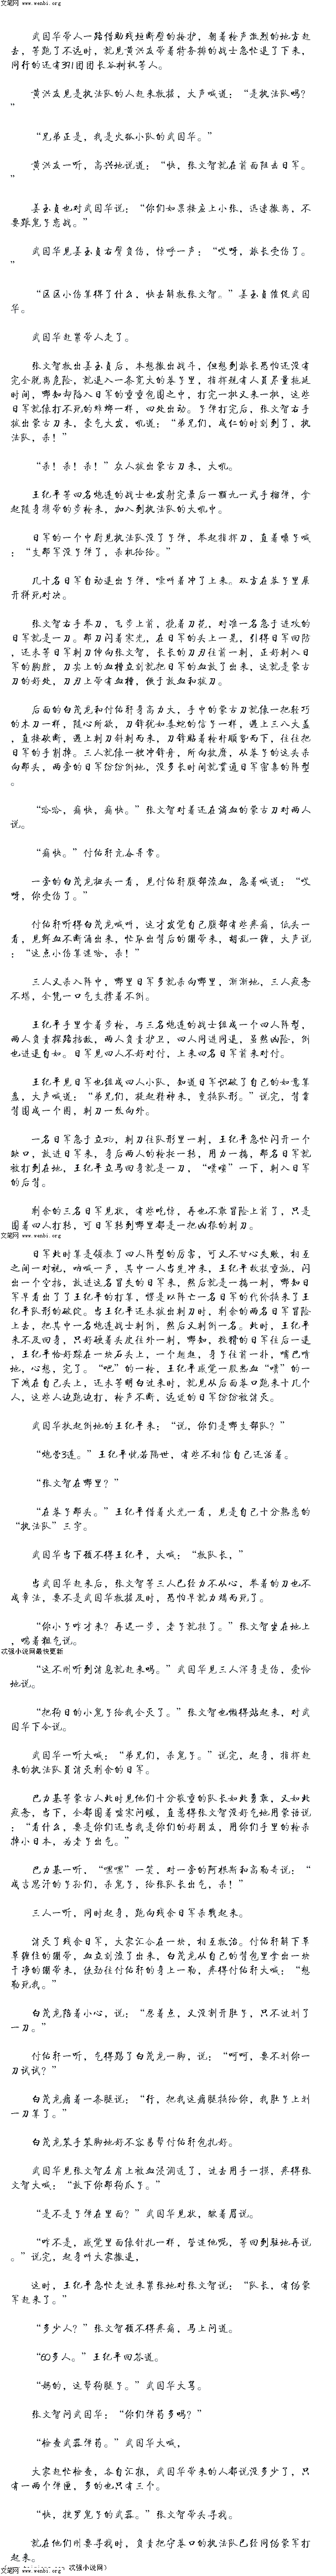 文笔网 www.wenbi.org
武国华带人一路借助残垣断壁的掩护，朝着枪声激烈的地方赶
去，等跑了不远时，就见黄洪友带着特务排的战士急忙退了下来，
同行的还有391团团长谷树枫等人。
黄洪友见是执法队的人赶来救援，大声喊道：“是执法队吗？
”
“兄弟正是，我是火狐小队的武国华。”
黄洪友一听，高兴地说道：“快，张文智就在前面阻击日军。
”
姜玉贞也对武国华说：“你们如果接应上小张，迅速撤离，不
要跟鬼子恋战。”
武国华见姜玉贞右臂负伤，惊呼一声：“哎呀，旅长受伤了。
”
“区区小伤算得了什么，快去解救张文智。”姜玉贞催促武国
华。
武国华赶紧带人走了。
张文智救出姜玉贞后，本想撤出战斗，但想到旅长恐怕还没有
完全脱离危险，就退入一条宽大的巷子里，指挥现有人员尽量拖延
时间，哪知却陷入日军的重重包围之中，打完一拨又来一拨，这些
日军就像打不死的蟑螂一样，四处出动。子弹打完后，张文智右手
拔出蒙古刀来，豪气大发，吼道：“弟兄们，成仁的时刻到了，执
法队，杀！”
“杀！杀！杀！”众人拔出蒙古刀来，大吼。
王纪平等四名炮连的战士也发射完最后一颗九一式手榴弹，拿
起随身携带的步枪来，加入到执法队的大吼中。
日军的一个中尉见执法队没了子弹，举起指挥刀，直着嗓子喊
：“支那军没子弹了，杀机给给。”
几十名日军自动退出子弹，嚎叫着冲了上来。双方在巷子里展
开拼死对决。
张文智右手举刀，飞步上前，挽着刀花，对准一名急于进攻的
日军就是一刀。那刀闪着寒光，在日军的头上一晃，引得日军回防
，还未等日军刺刀伸向张文智，长长的刀刃往前一刺，正好刺入日
军的胸膛，刀尖上的血槽立刻就把日军的血放了出来，这就是蒙古
刀的好处，刀刃上带有血槽，便于放血和拔刀。
后面的白茂龙和付佑轩身高力大，手中的蒙古刀就像一把轻巧
的木刀一样，随心所欲，刀锋犹如毒蛇的信子一样，遇上三八大盖
，直接砍断，遇上刺刀斜刺而来，刀锋贴着枪杆顺势而下，往往把
日军的手削掉。三人就像一艘冲锋舟，所向披靡，从巷子的这头杀
向那头，两旁的日军纷纷倒地，没多长时间就贯通日军密集的阵型
。
“哈哈，痛快，痛快。”张文智对着还在滴血的蒙古刀对两人
说。
“痛快。”付佑轩亢奋异常。
一旁的白茂龙扭头一看，见付佑轩腹部流血，急着喊道：“哎
呀，你受伤了。”
付佑轩听得白茂龙喊叫，这才发觉自己腹部有些疼痛，低头一
看，见鲜血不断涌出来，忙取出背后的绷带来，胡乱一缠，大声说
：“这点小伤算逑哈，杀！”
三人又杀入阵中，哪里日军多就杀向哪里，渐渐地，三人疲惫
不堪，全凭一口气支撑着不倒。
王纪平手里拿着步枪，与三名炮连的战士组成一个四人阵型，
两人负责探路挡敌，两人负责护卫，四人同进同退，虽然凶险，倒
也进退自如。日军见四人不好对付，上来四名日军前来对付。
王纪平见日军也组成四人小队，知道日军识破了自己的如意算
盘，大声喊道：“弟兄们，提起精神来，变换队形。”说完，背靠
背围成一个圈，刺刀一致向外。
一名日军急于立功，刺刀往队形里一刺，王纪平急忙闪开一个
缺口，放进日军来，身后两人的枪托一转，用力一搞，那名日军就
被打到在地，王纪平立马回身就是一刀，“噗嗤”一下，刺入日军
的后背。
剩余的三名日军见状，有些吃惊，再也不敢冒险上前了，只是
围着四人打转，可日军转到哪里都是一把凶狠的刺刀。
文笔网 www.wenbi.org
日军此时算是领教了四人阵型的厉害，可又不甘心失败，相互
之间一对视，呐喊一声，其中一人当先冲来，王纪平故技重施，闪
出一个空挡，放进这名冒失的日军来，然后就是一搞一刺，哪知日
军早看出了了王纪平的打算，愣是以阵亡一名日军的代价换来了王
纪平队形的破绽。当王纪平还未拔出刺刀时，剩余的两名日军冒险
上去，把其中一名炮连战士刺倒，然后又刺倒一名。此时，王纪平
来不及回身，只好硬着头皮往外一刺，哪知，狡猾的日军往后一退
，王纪平恰好踩在一块石头上，一个趔趄，身子往前一扑，嘴巴啃
地，心想，完了。“吧”的一枪，王纪平感觉一股热血“噗”的一
下洒在自己头上，还未等明白过来时，就见从后面巷口跑来十几个
人，这些人边跑边打，枪声不断，远近的日军纷纷被消灭。
武国华扶起倒地的王纪平来：“说，你们是哪支部队？”
“炮营3连。”王纪平恍若隔世，有些不相信自己还活着。
“张文智在哪里？”
“在巷子那头。”王纪平借着火光一看，见是自己十分熟悉的
“执法队”三字。
武国华当下顾不得王纪平，大喊：“救队长，”
当武国华赶来后，张文智等三人已经力不从心，举着的刀也不
成章法，要不是武国华救援及时，恐怕早就力竭而死了。
“你小子咋才来？再迟一步，老子就挂了。”张文智坐在地上
，喘着粗气说。
次强小说网最快更新
“这不刚听到消息就赶来吗。”武国华见三人浑身是伤，爱怜
地说。
“把狗日的小鬼子给我全灭了。”张文智也懒得站起来，对武
国华下令说。
武国华一听大喊：“弟兄们，杀鬼子。”说完，起身，指挥赶
来的执法队员消灭剩余的日军。
巴力基等蒙古人此时见他们十分敬重的队长如此勇敢，又如此
疲惫，当下，全都围着嘘寒问暖，直惹得张文智没好气地用蒙语说
：“看什么，要是你们还当我是你们的好朋友，用你们手里的枪杀
掉小日本，为老子出气。”
巴力基一听，“嘿嘿”一笑，对一旁的阿根斯和高勒奇说：“
成吉思汗的子孙们，杀鬼子，给张队长出气，杀！”
三人一听，同时起身，跑向残余日军杀戮起来。
消灭了残余日军，大家汇合在一块，相互救治。付佑轩解下草
草缠住的绷带，血立刻流了出来，白茂龙从自己的背包里拿出一块
干净的绷带来，使劲往付佑轩的身上一勒，疼得付佑轩大喊：“想
勒死我。”
白茂龙陪着小心，说：“忍着点，又没割开肚子，只不过划了
一刀。”
付佑轩一听，气得踢了白茂龙一脚，说：“呵呵，要不划你一
刀试试？”
白茂龙瘸着一条腿说：“行，把我这瘸腿换给你，我肚子上划
一刀算了。”
白茂龙笨手笨脚地好不容易帮付佑轩包扎好。
武国华见张文智左肩上被血浸润透了，过去用手一摸，疼得张
文智大喊：“放下你那狗爪子。”
“是不是子弹在里面？”武国华见状，皱着眉说。
“咋不是，感觉里面像针扎一样，管逑他呢，等回到驻地再说
。”说完，起身叫大家撤退，
这时，王纪平急忙走过来紧张地对张文智说：“队长，有伪蒙
军赶来了。”
“多少人？”张文智顾不得疼痛，马上问道。
“60多人。”王纪平回答道。
“妈的，这帮狗腿子。”武国华大骂。
张文智问武国华：“你们弹药多吗？”
“检查武器弹药。”武国华大喊，
大家赶忙检查，各自汇报，武国华带来的人都说没多少了，只
有一两个弹匣，多的也只有三个。
“快，搜罗鬼子的武器。”张文智带头寻找。
就在他们刚要寻找时，负责把守巷口的执法队已经同伪蒙军打
起来。
文笔网 www.wenbi.org 次强小说网）